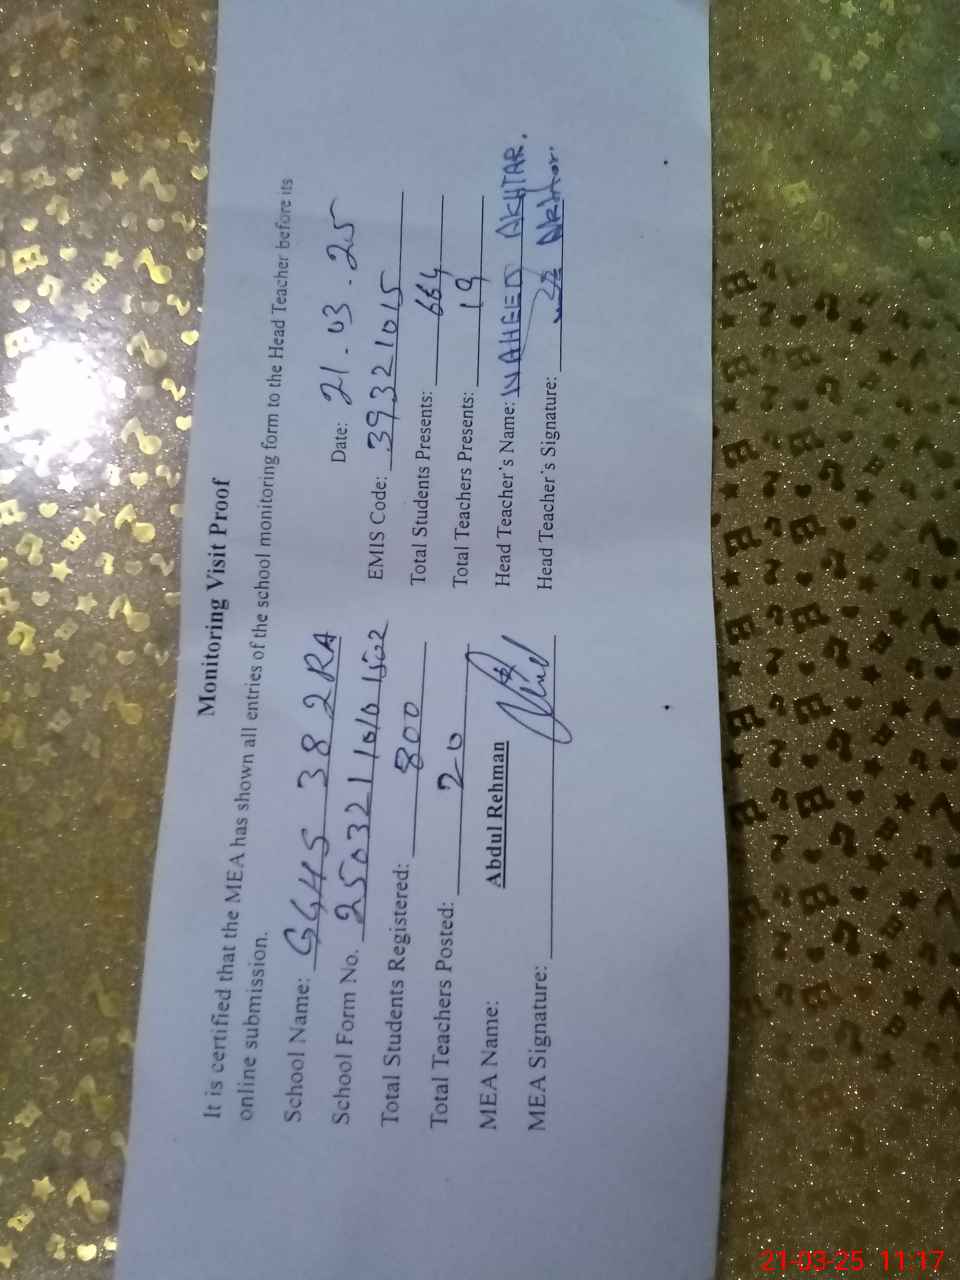 Monitoring Visit Proof
It is certified that the MEA has shown all entries of the school monitoring form to the Head Teacher before its
online submission.
School Name: GGHS 382RA Date: 21.03.25
School Form No. 250321 EMIS Code: 39321015
Total Students Registered: 800 Total Students Presents: 664
Total Teachers Posted: 20 Total Teachers Presents: 19
MEA Name: Abdul Rehman Head Teacher's Name: WAHEED AKHTAR.
MEA Signature: Head Teacher's Signature: Akhtar.
21-03-25 11:17